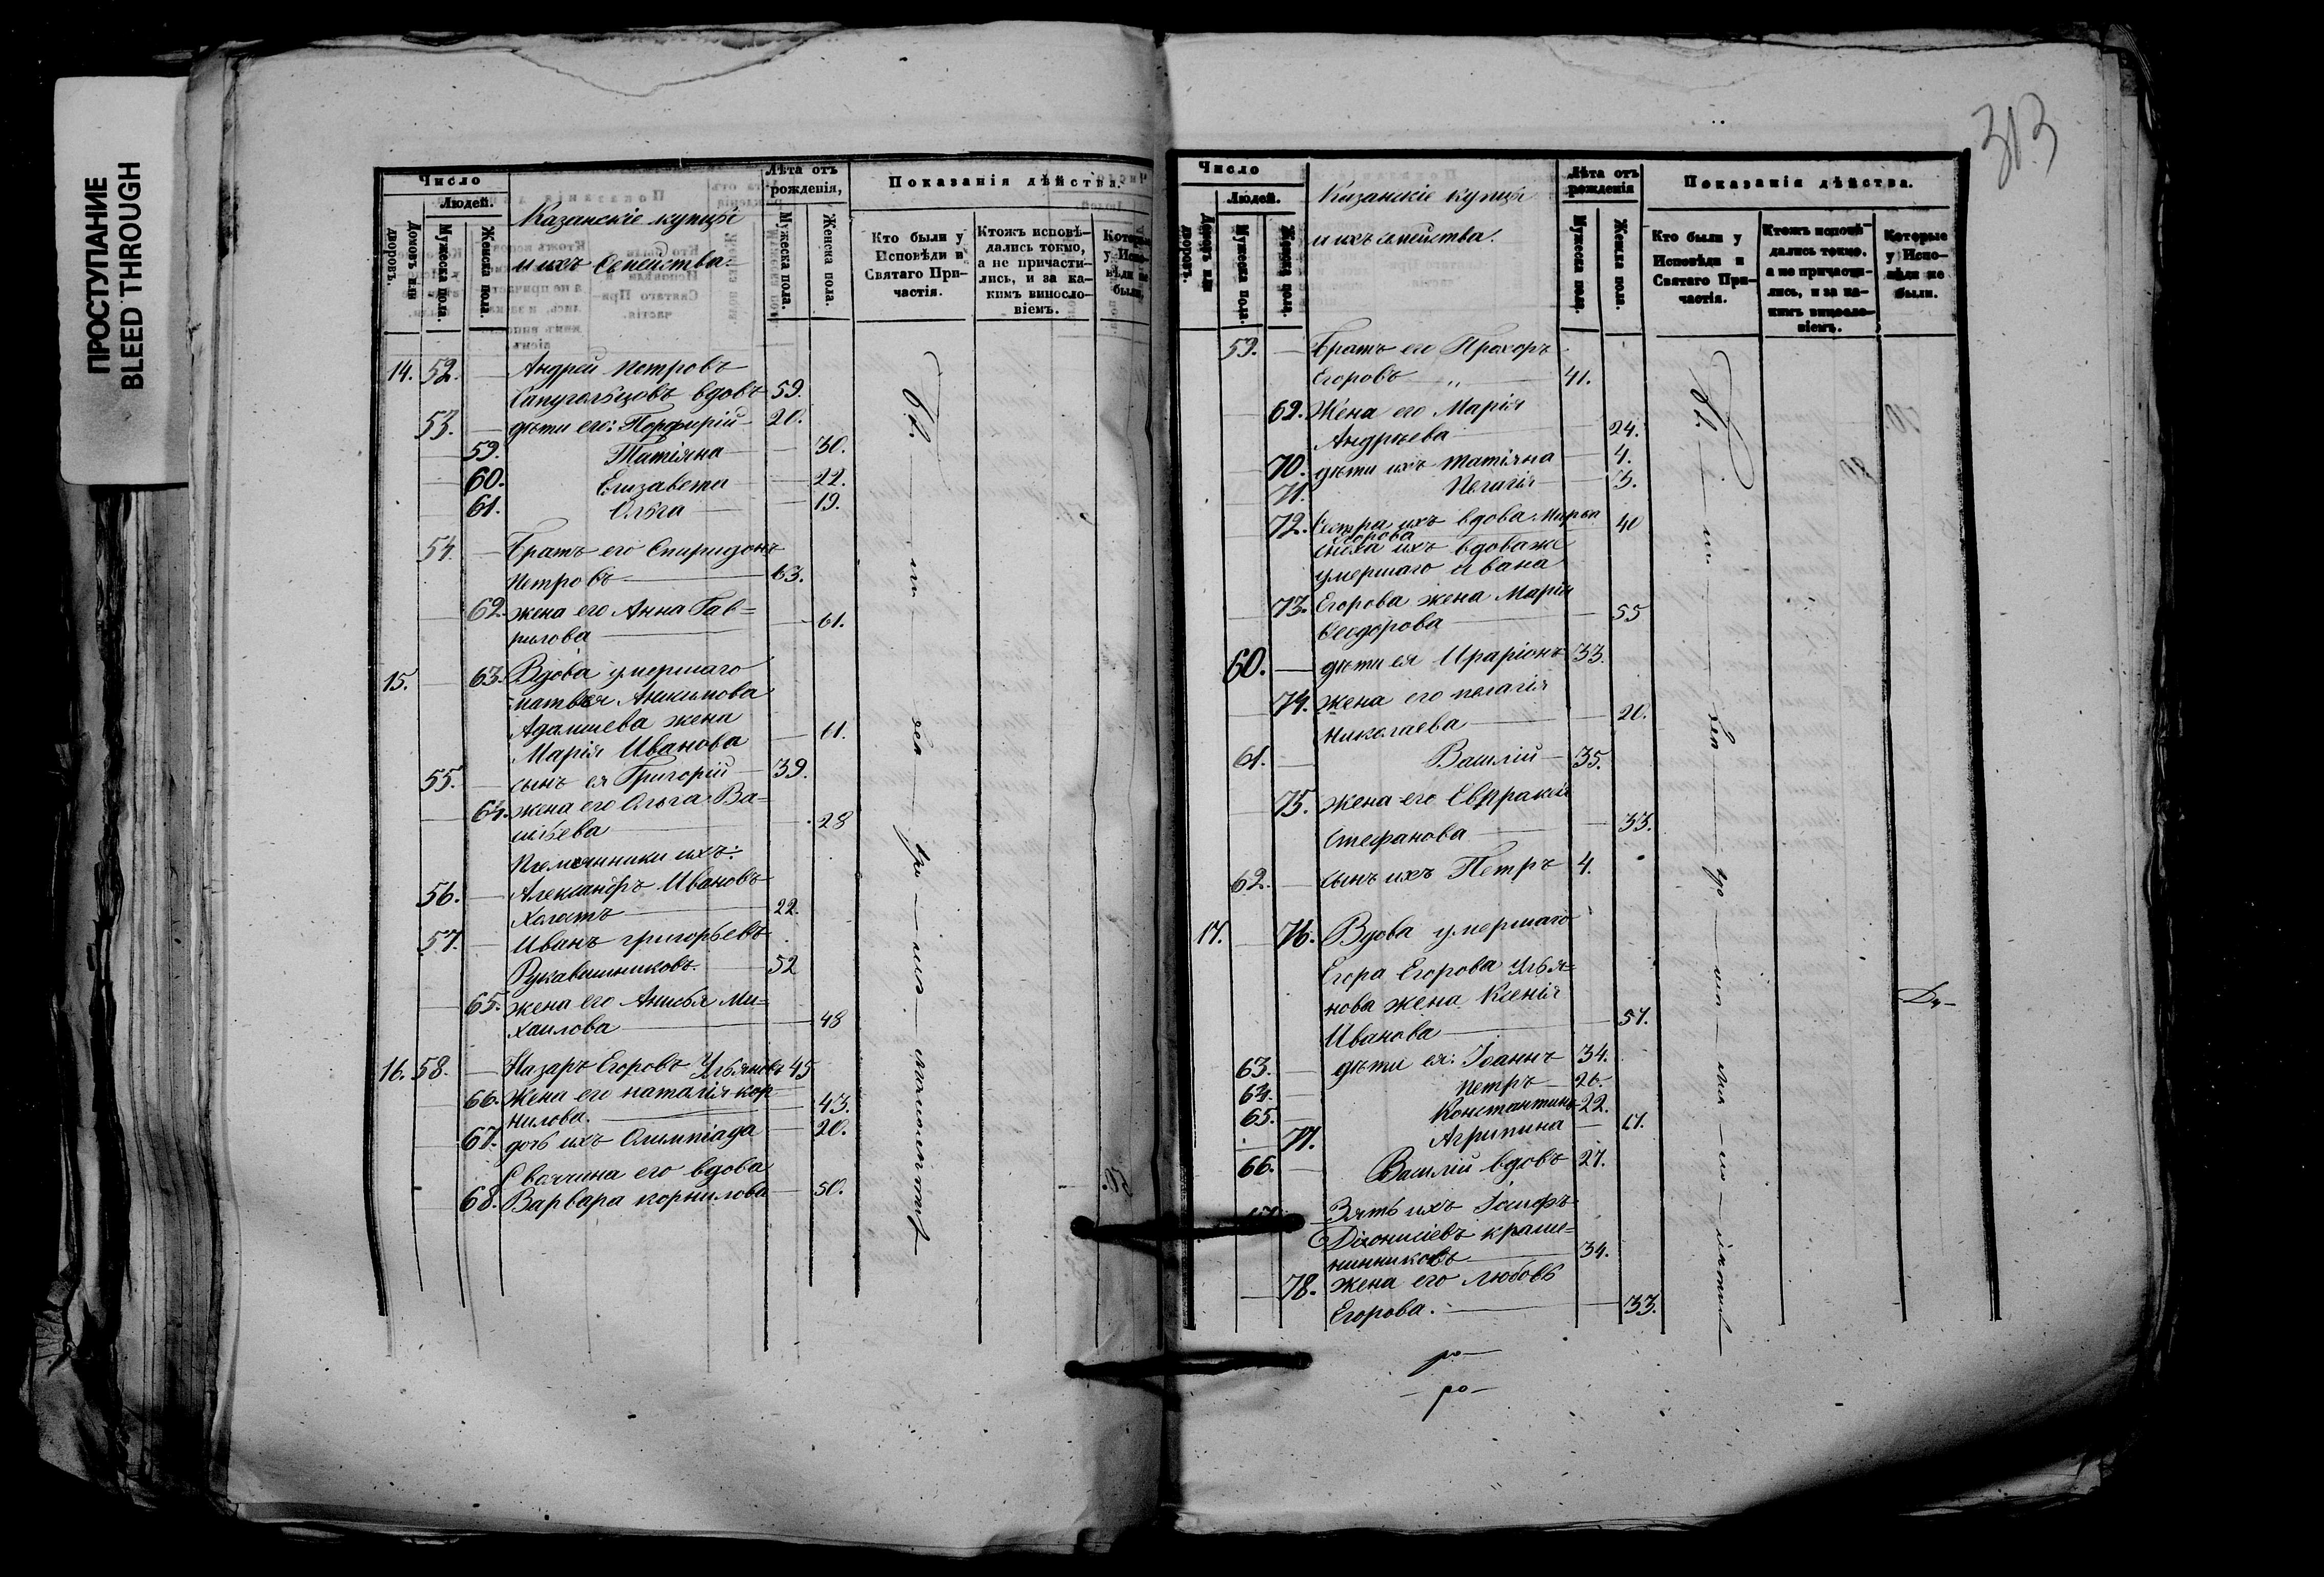 ПРОСТУПАНИЕ
BLEED THROUGH
Число
Людей.
Домовъ или дворовъ.
Мужеска пола.
Женска пола.
Казанскіе купцы
и ихъ Семейства.
Лѣта отъ рожденія,
Мужеска пола.
Женска пола.
Показанія дѣйства.
Кто были у Исповѣди и Святаго Причастія.
Ктожъ исповѣдались токмо, а не причастились, и за какимъ винословіемъ.
Которые у Исповѣди не были.
14. 52. — Андрей Петровъ
вдовъ 59.
53. — дѣти его: Порфирій — 20.
59. Татіяна — 30.
60. Елизавета — 22.
61. Ольга — 19.
54. — Братъ его Спиридонъ
Петровъ — 63.
62. жена его Анна Гав=
рилова — 61.
15. — 63. Вдова умершаго
Матвея Аникимова
Адамшева жена
Марія Иванова — 61.
55. — сынъ ея Григорій — 39.
64. жена его Ольга Ва=
сильева — 28
Племянники ихъ:
56. — Александръ Ивановъ
Холостъ — 22.
57. — Иванъ Григорьевъ
Рукавишниковъ. — 52
65. жена его Анисья Ми=
хаилова — 48
16. 58. — Назаръ Егоровъ Ульяновъ 45
66. Жена его Наталія Кор
нилова. — 43.
67. дочь ихъ Олимпіада — 20.
Своячина его вдова
68. Варвара Корнилова — 50.
313
Число
Людей.
Домовъ или дворовъ.
Мужеска пола.
Женска пола.
Казанскіе купцы
и ихъ семейства.
Лѣта отъ рожденія
Мужеска пола.
Женска пола.
Показанія дѣйства.
Кто были у Исповѣди и Святаго Причастія.
Ктожъ исповѣдались токмо, а не причастились, и за какимъ винословіемъ.
Которые у Исповѣди не были.
59. — Братъ его Прохоръ
Егоровъ — „ — 41.
69. Жена его Марія
Андреева — 24.
70. дѣти ихъ Татіяна — 4.
71. Пелагія — 3.
72. Сестра ихъ вдова Марья 40
Егорова
сноха ихъ вдова же
умершаго Ивана
73. Егорова жена Марія
Ѳеодорова — 55
60. — дѣти ея Иларіонъ 33.
74. жена его Пелагія
Николаева — 20.
61. — Василій — 35.
75. жена его Евпраксія
Стефанова — 33.
62. — сынъ ихъ Петръ 4.
17. — 76. Вдова умершаго
Егора Егорова Улья=
нова жена Ксенія
Иванова — 57.
63. — дѣти ея: Іоаннъ 34.
64. Петръ — 26.
65. — Константинъ 22.
77. Агрипина — 17.
66. — Василій вдовъ 27.
Зять ихъ Іосифъ
Діонисіевъ Краше=
нинниковъ — 34.
78. жена его Любовь
Егорова. — 33.